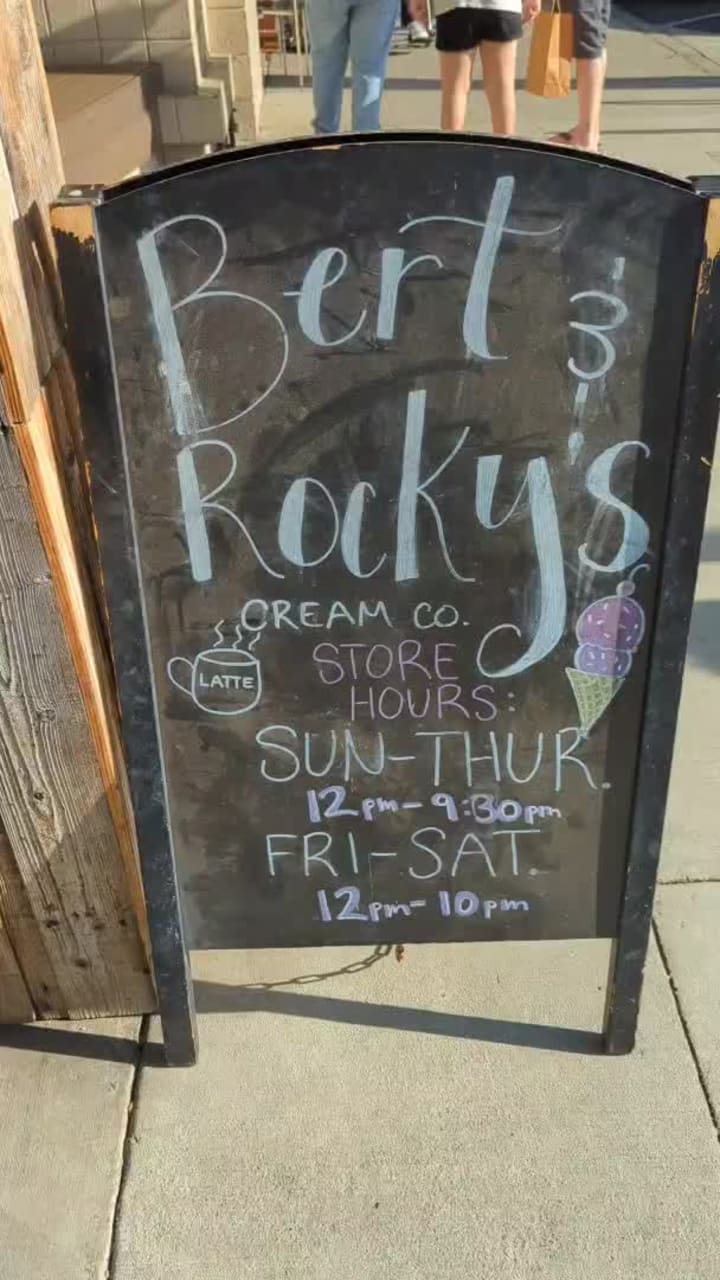 Bert &
Rocky's
CREAM CO.
LATTE
STORE
HOURS:
SUN-THUR.
12pm-9:30pm
FRI-SAT.
12pm-10pm